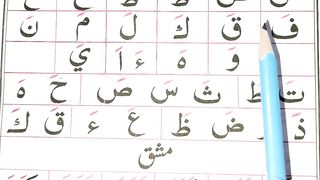 فَ قَ كَ لَ مَ نَ
وَ هَ ءَ اَ يَ
تَ طَ ثَ سَ صَ حَ هَ
ذَ ضَ ظَ عَ ءَ قَ كَ
مشق